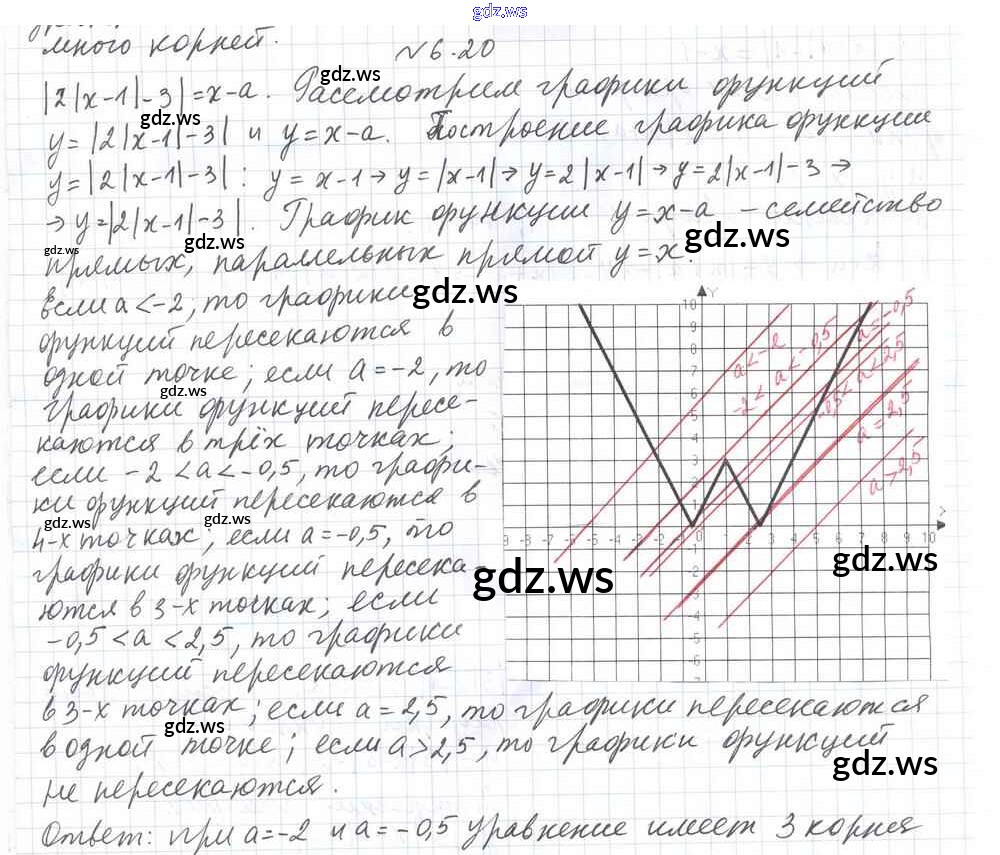 gdz.ws
много корней.
№6.20
|2|x-1|-3|=x-a. Рассмотрим графики функций
gdz.ws
gdz.ws
y=|2|x-1|-3| и y=x-a. Построение графика функции
y=|2|x-1|-3|: y=x-1→y=|x-1|→y=2|x-1|→y=2|x-1|-3→
→y=|2|x-1|-3|. График функции y=x-a - семейство
gdz.ws gdz.ws gdz.ws
прямых, параллельных прямой y=x.
если a<-2, то графики
gdz.ws
функций пересекаются в
одной точке; если a=-2, то
gdz.ws
графики функций пересе-
каются в трёх точках;
если -2<a<-0,5, то графи-
ки функций пересекаются в
gdz.ws gdz.ws
4-х точках; если a=-0,5, то
графики функций пересека-
gdz.ws gdz.ws
ются в 3-х точках; если
-0,5<a<2,5, то графики
функций пересекаются
в 3-х точках; если a=2,5, то графики пересекаются
gdz.ws
в одной точке; если a>2,5, то графики функций
gdz.ws
не пересекаются.
Ответ: при a=-2 и a=-0,5 уравнение имеет 3 корня
y
10
9
8
7
6
5
4
3
2
1
-9 -8 -7 -6 -5 -4 -3 -2 1 2 3 4 5 6 7 8 9 10
x
-1
-2
-5
-6
a<-2
-2<a<-0,5
a=-0,5
-0,5<a<2,5
a=2,5
a>2,5